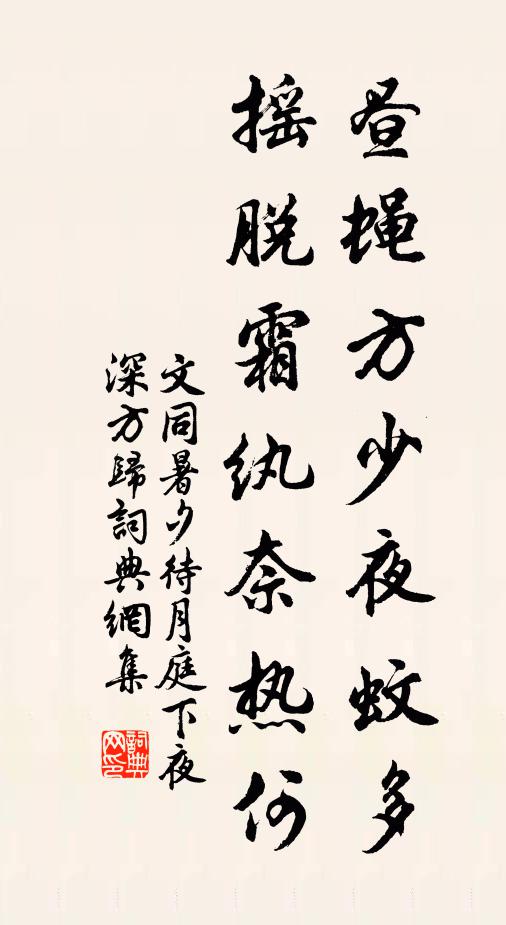 昼蝇方少夜蚊多
摇脱霜纨奈热何
文同暑夕待月庭下夜
深方歸詞典網集
詞典网印